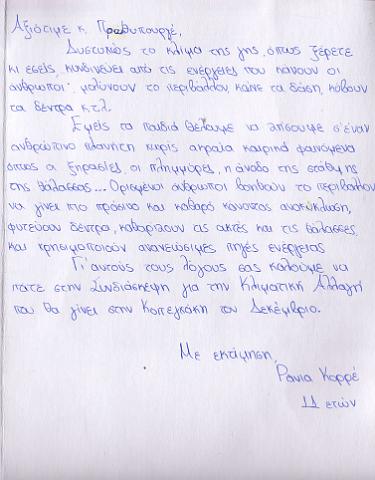 Αξιότιμε κ. Πρωθυπουργέ,
Δυστυχώς το κλίμα της γης, όπως ξέρετε
κι εσείς, κινδυνεύει από τις ενέργειες που κάνουν οι
άνθρωποι: μολύνουν το περιβάλλον, καίνε τα δάση, κόβουν
τα δέντρα κ.τ.λ.
Εμείς τα παιδιά θέλουμε να ζήσουμε σ'έναν
ανθρώπινο πλανήτη χωρίς ακραία καιρικά φαινόμενα
όπως οι ξηρασίες, οι πλημμύρες, η άνοδο της στάθμης
της θάλασσας... Ορισμένοι άνθρωποι βοηθούν το περιβάλλον
να γίνει πιο πράσινο και καθαρό κάνοντας ανακύκλωση,
φυτεύουν δέντρα, καθαρίζουν τις ακτές και τις θάλασσες,
και χρησιμοποιούν ανανεώσιμες πηγές ενέργειας.
Γι'αυτούς τους λόγους σας καλούμε να
πάτε στην Συνδιάσκεψη για την Κλιματική Αλλαγή
που θα γίνει στην Κοπεγκάκη τον Δεκέμβριο.
Με εκτίμηση,
Ράνια Κορρέ
11 ετών